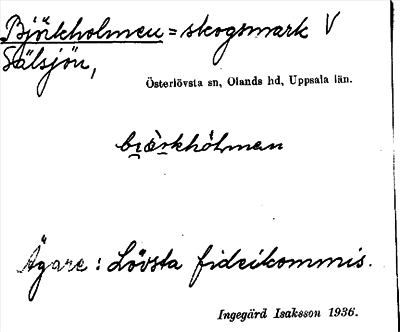 Björkholmen = skogsmark V
Sälsjön,
Österlövsta sn, Olands hd, Uppsala län.
Ägare : Lövsta fideikommis.
Ingegärd Isaksson 1936.